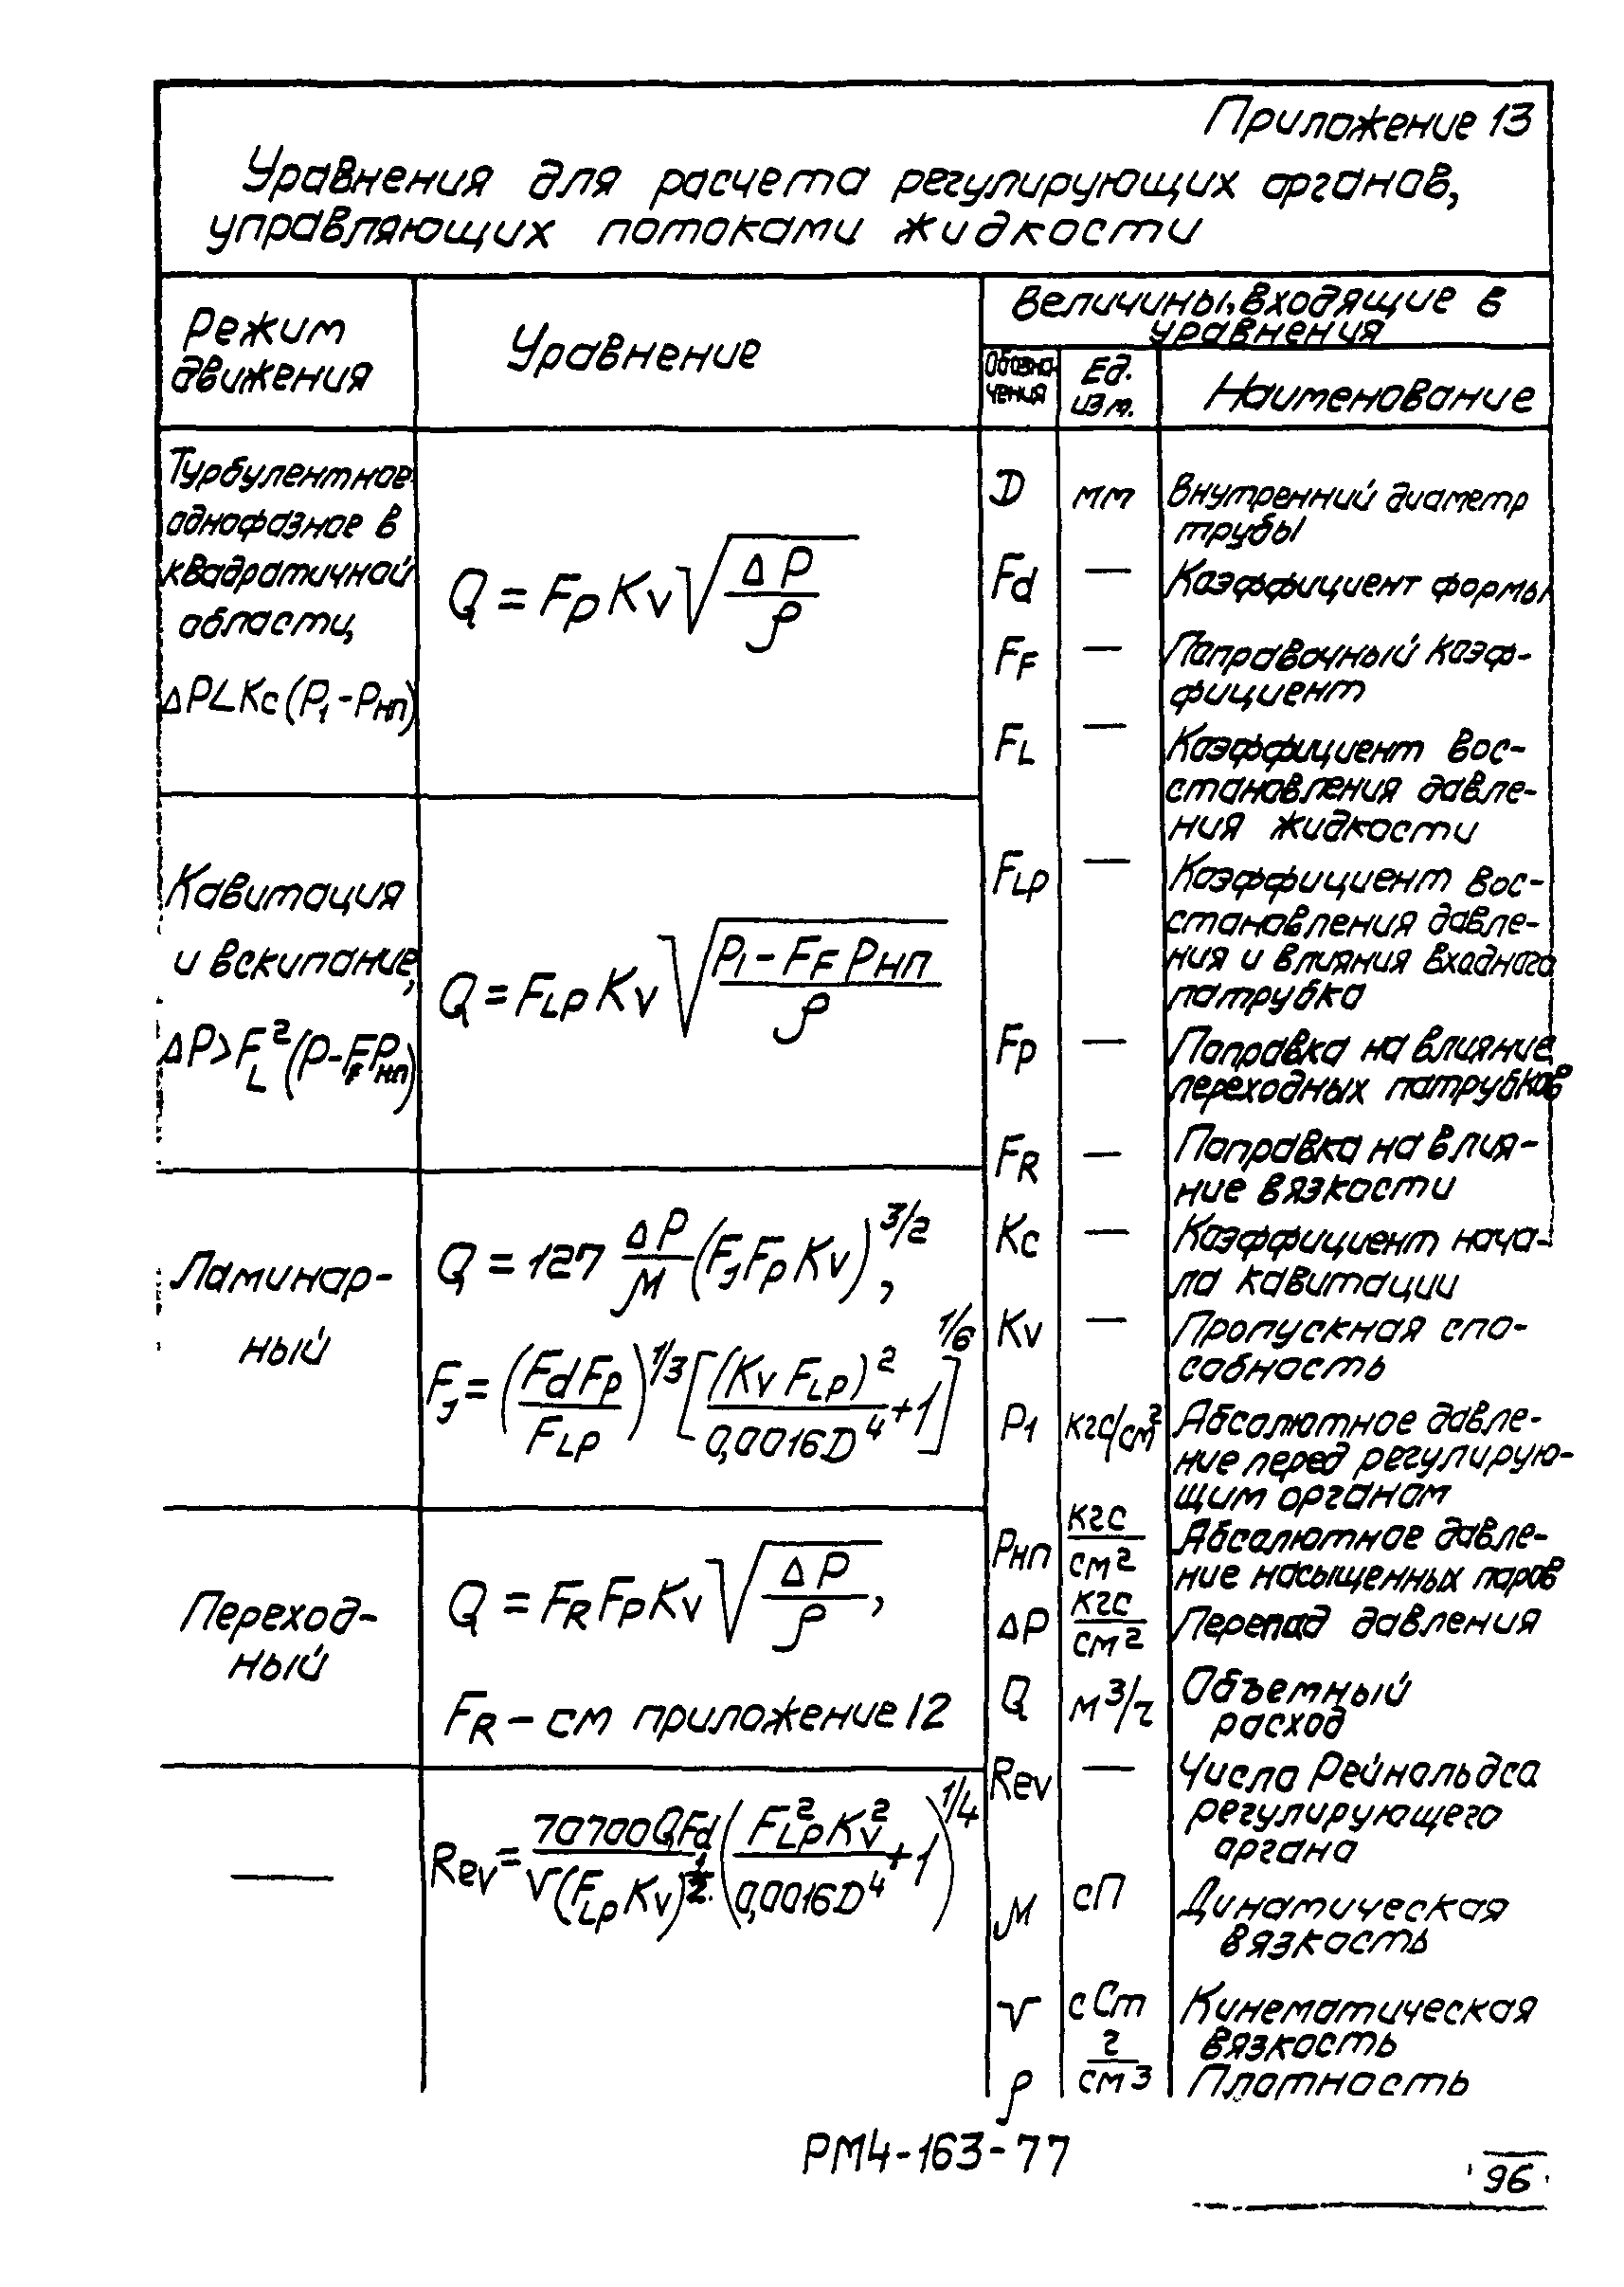 Приложение 13
Уравнения для расчета регулирующих органов,
управляющих потоками жидкости
Режим
движения
Уравнение
Величины, входящие в
уравнения
Обозна-
чения
Ед.
изм.
Наименование
Турбулентное
однофазное в
квадратичной
области,
ΔP∠Kc(P₁-Pнп)
Q = Fp Kv √(ΔP/ρ)
Кавитация
и вскипание,
ΔP>F_L²(P-F_F Pнп)
Q = F_Lp Kv √((P₁-F_F Pнп)/ρ)
Ламинар-
ный
Q = 127 ΔP/μ (Fⱼ Fp Kv)^3/2,
Fⱼ = (Fd Fp/F_Lp)^1/3 [(Kv F_Lp)²/0,0016D⁴+1]^1/6
Переход-
ный
Q = F_R Fp Kv √(ΔP/ρ),
F_R – см приложение 12
—
Rev = 70700QFd/ν(F_Lp Kv)^1/2 · (F_Lp² Kv²/0,0016D⁴+1)^1/4
D мм Внутренний диаметр
трубы
Fd — Коэффициент формы
F_F — Поправочный коэф-
фициент
F_L — Коэффициент вос-
становления давле-
ния жидкости
F_Lp — Коэффициент вос-
становления давле-
ния и влияния входного
патрубка
Fp — Поправка на влияние
переходных патрубков
F_R — Поправка на влия-
ние вязкости
Kc — Коэффициент нача-
ла кавитации
Kv — Пропускная спо-
собность
P₁ кгс/см² Абсолютное давле-
ние перед регулирую-
щим органом
Pнп кгс/см² Абсолютное давле-
ние насыщенных паров
ΔP кгс/см² Перепад давления
Q м³/ч Объемный
расход
Rev — Число Рейнольдса
регулирующего
органа
μ сП Динамическая
вязкость
ν сСт Кинематическая
вязкость
ρ г/см³ Плотность
РМ4-163-77
96